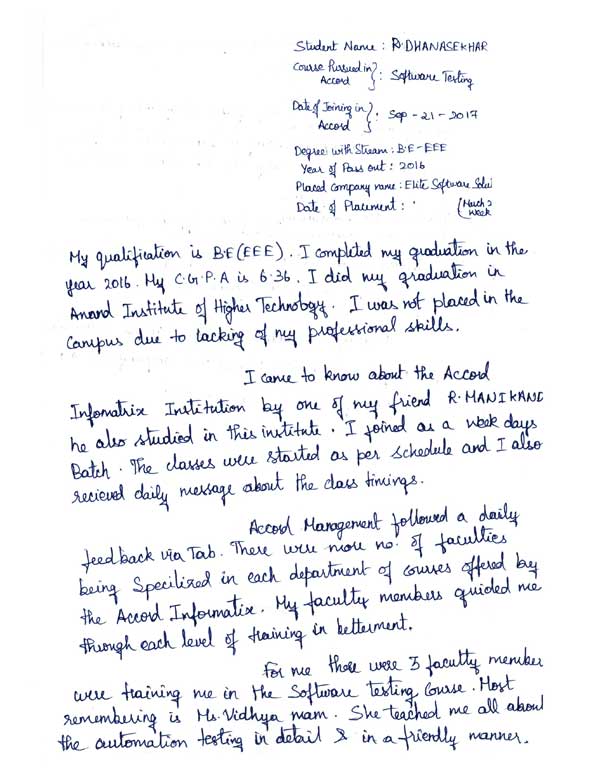 Student Name : R. DHANASEKHAR
Course Pursued in
Accord } : Software Testing
Date of Joining in
Accord } : Sep - 21 - 2017
Degree with Stream : B.E - EEE
Year of Pass out : 2016
Placed Company name : Elite Software Solu
Date of Placement : ' (March 2
week
My qualification is B.E (EEE). I completed my graduation in the
year 2016. My C.G.P.A is 6.36. I did my graduation in
Anand Institute of Higher Technology. I was not placed in the
Campus due to lacking of my professional skills.
I came to know about the Accord
Infomatrix Institution by one of my friend R. MANIKAND
he also studied in this institute. I joined as a week days
Batch. The classes were started as per schedule and I also
recieved daily message about the class timings.
Accord Management followed a daily
feedback via Tab. There were more no. of faculties
being Specilized in each department of courses offered by
the Accord Informatix. My faculty members guided me
through each level of training in betterment.
For me there were 3 faculty member
were training me in the Software testing Course. Most
remembering is Ms. Vidhya mam. She teached me all about
the automation testing in detail & in a friendly manner.